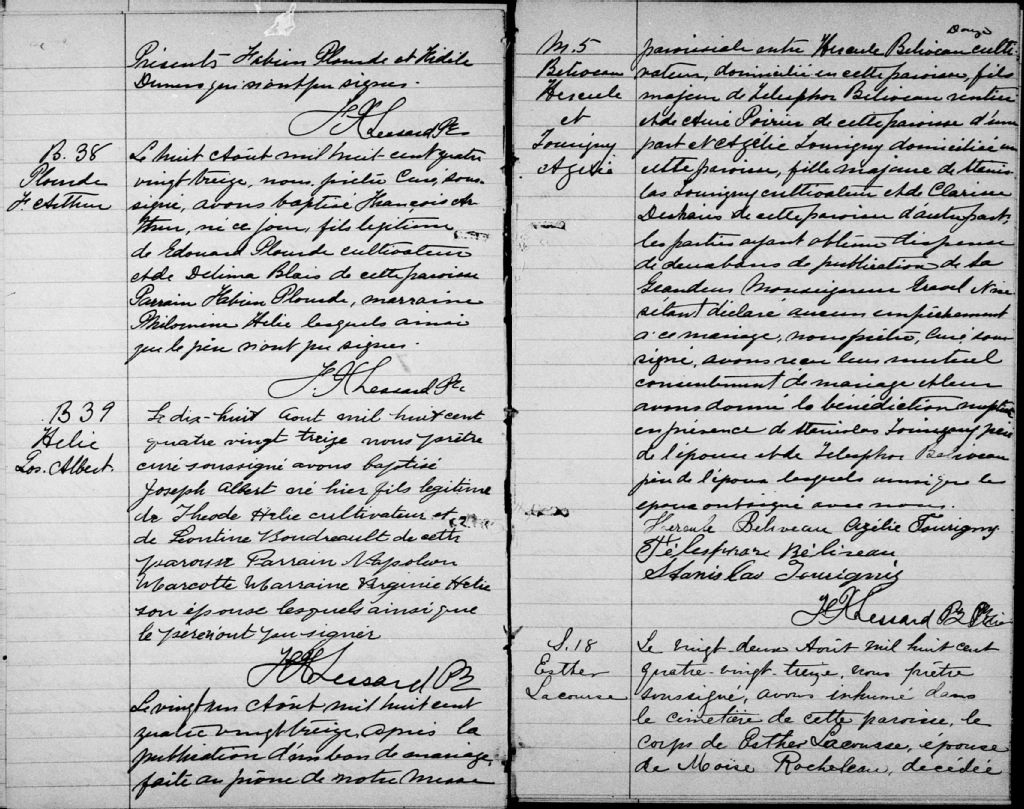 Présents Fabien Plourde et Fidèle
Dumers qui n'ont pu signer.
F X Lessard Ptr
B. 38
Plourde
F. Arthur
Le huit Août mil huit cent quatre
vingt treize, nous, prêtre Curé, sous-
signé, avons baptisé François Ar
thur, né ce jour, fils legitime
de Edouard Plourde cultivateur
et de Délima Blais de cette paroisse
Parrain Fabien Plourde, marraine
Philomine Helie lesquels ainsi
que le père n'ont pu signer.
F. X Lessard Ptr
B 39
Helie
Jos. Albert.
Le dix-huit Aout mil huit cent
quatre vingt treize nous prêtre
curé soussigné avons baptisé
Joseph Albert né hier fils legitime
de Theode Helie cultivateur et
de Leontine Boudreault de cette
paroisse Parrain Napoleon
Marcotte Marraine Virginie Helie
son épouse lesquels ainsi que
le père n'ont pu signer
F X Lessard Ptr
Le vingt un Août mil huit cent
quatre vingt treize, après la
publication d'un ban de mariage,
faite au prône de notre messe
M. 5
Beliveau
Hercule
et
Tourigny
Azélie
paroissiale entre Hercule Beliveau culti
vateur, domicilié en cette paroisse, fils
majeur de Telesphor Beliveau rentier
et de Poirier de cette paroisse d'une
part et Azélie Tourigny domiciliée en
cette paroisse, fille majeure de Stanis
las Tourigny cultivateur et de Clarisse
Deshaies de cette paroisse d'autre part;
les parties ayant obtenu dispense
de deux bans de publication de Sa
Grandeur Monseigneur Gravel N ne
s'étant déclaré aucun empêchement
à ce mariage, nous prêtre, Curé sous
signé, avons reçu leur mutuel
consentement de mariage et leur
avons donné la bénédiction nuptiale
en présence de Stanislas Tourigny père
de l'épouse et de Telesphor Beliveau
père de l'époux lesquels ainsi que les
époux ont signé avec nous.
Hercule Beliveau Azélie Tourigny
Télesphore Béliveau
Stanislas Tourigny
F X Lessard Ptr
S. 18
Esther
Lacourse
Le vingt deux Août mil huit cent
quatre-vingt-treize, nous prêtre
soussigné, avons inhumé dans
le cimetière de cette paroisse, le
corps de Esther Lacousse, épouse
de Moïse Rocheleau, décédée